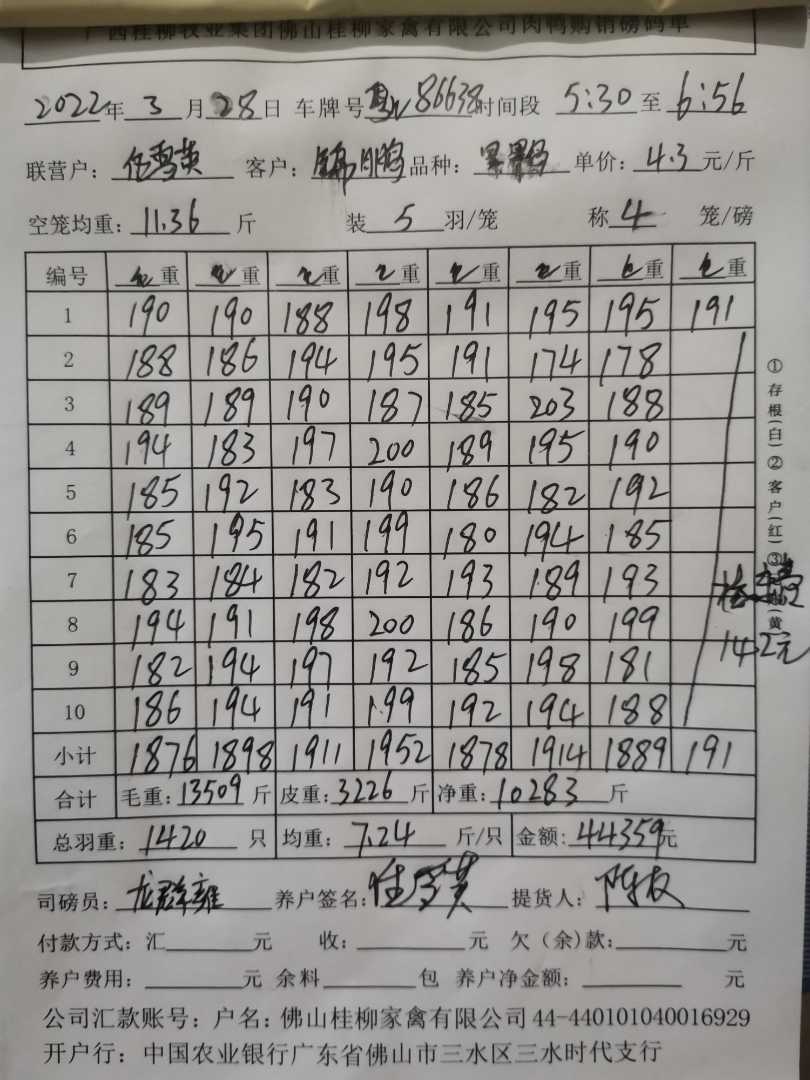 广西桂柳牧业集团佛山桂柳家禽有限公司肉鸭购销磅码单
2022年 3 月 28 日 车牌号 86638 时间段 5:30 至 6:56
联营户: 任雪英 客户: 锦鹏 品种: 单价: 4.3 元/斤
空笼均重: 11.36 斤 装 5 羽/笼 称 4 笼/磅
编号 毛重 毛重 毛重 毛重 毛重 毛重 毛重 毛重
1 190 190 188 198 191 195 195 191
2 188 186 194 195 191 174 178
3 189 189 190 187 185 203 188
4 194 183 197 200 189 195 190
5 185 192 183 190 186 182 192
6 185 195 191 199 180 194 185
7 183 184 182 192 193 189 193
8 194 191 198 200 186 190 199
9 182 194 197 192 185 198 181
10 186 194 191 199 192 194 188
小计 1876 1898 1911 1952 1878 1914 1889 191
合计 毛重: 13509 斤 皮重: 3226 斤 净重: 10283 斤
总羽重: 1420 只 均重: 7.24 斤/只 金额: 44359元
司磅员: 龙群雍 养户签名: 任雪英 提货人:
付款方式: 汇 元 收: 元 欠(余)款: 元
养户费用: 元 余料 包 养户净金额: 元
公司汇款账号: 户名: 佛山桂柳家禽有限公司 44-440101040016929
开户行: 中国农业银行广东省佛山市三水区三水时代支行
①存根(白)②客户(红)③(黄
142元